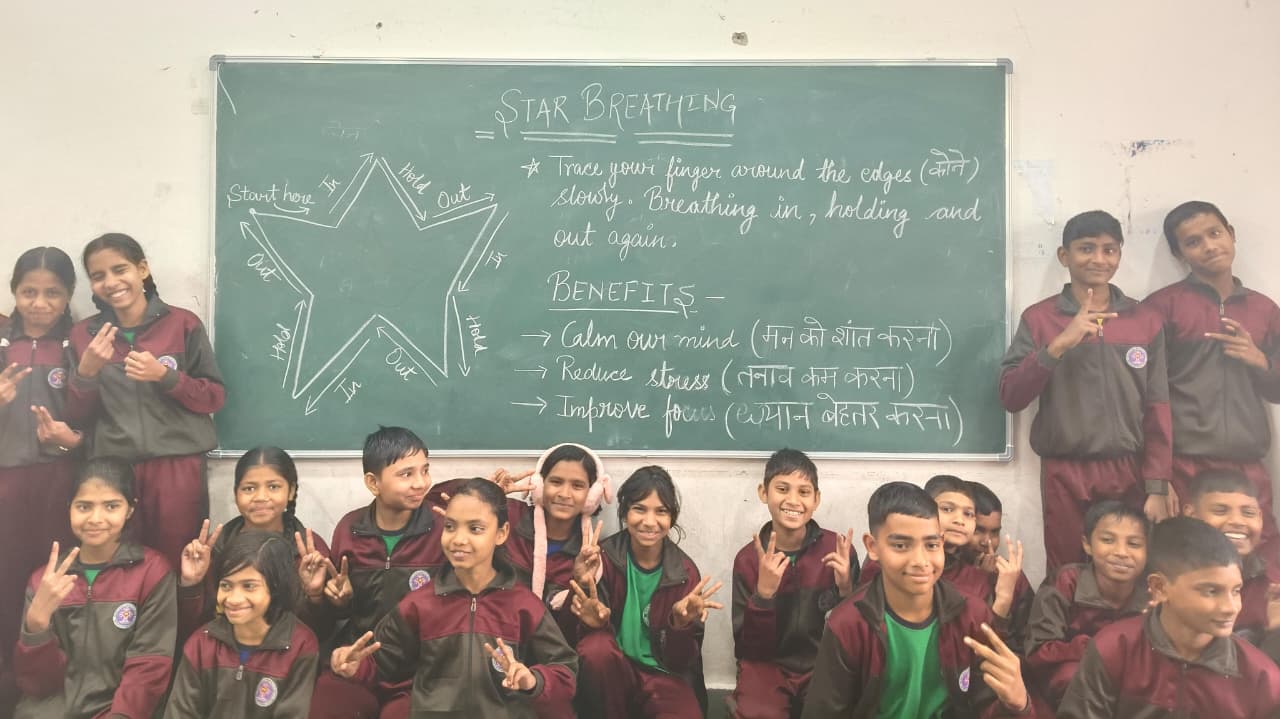 STAR BREATHING
Start here
In
Hold
Out
In
Hold
Out
In
Hold
Out
☆ Trace your finger around the edges (कोने)
slowly. Breathing in, holding and
out again.
BENEFITS –
→ Calm our mind (मन को शांत करना)
→ Reduce stress (तनाव कम करना)
→ Improve focus (ध्यान बेहतर करना)